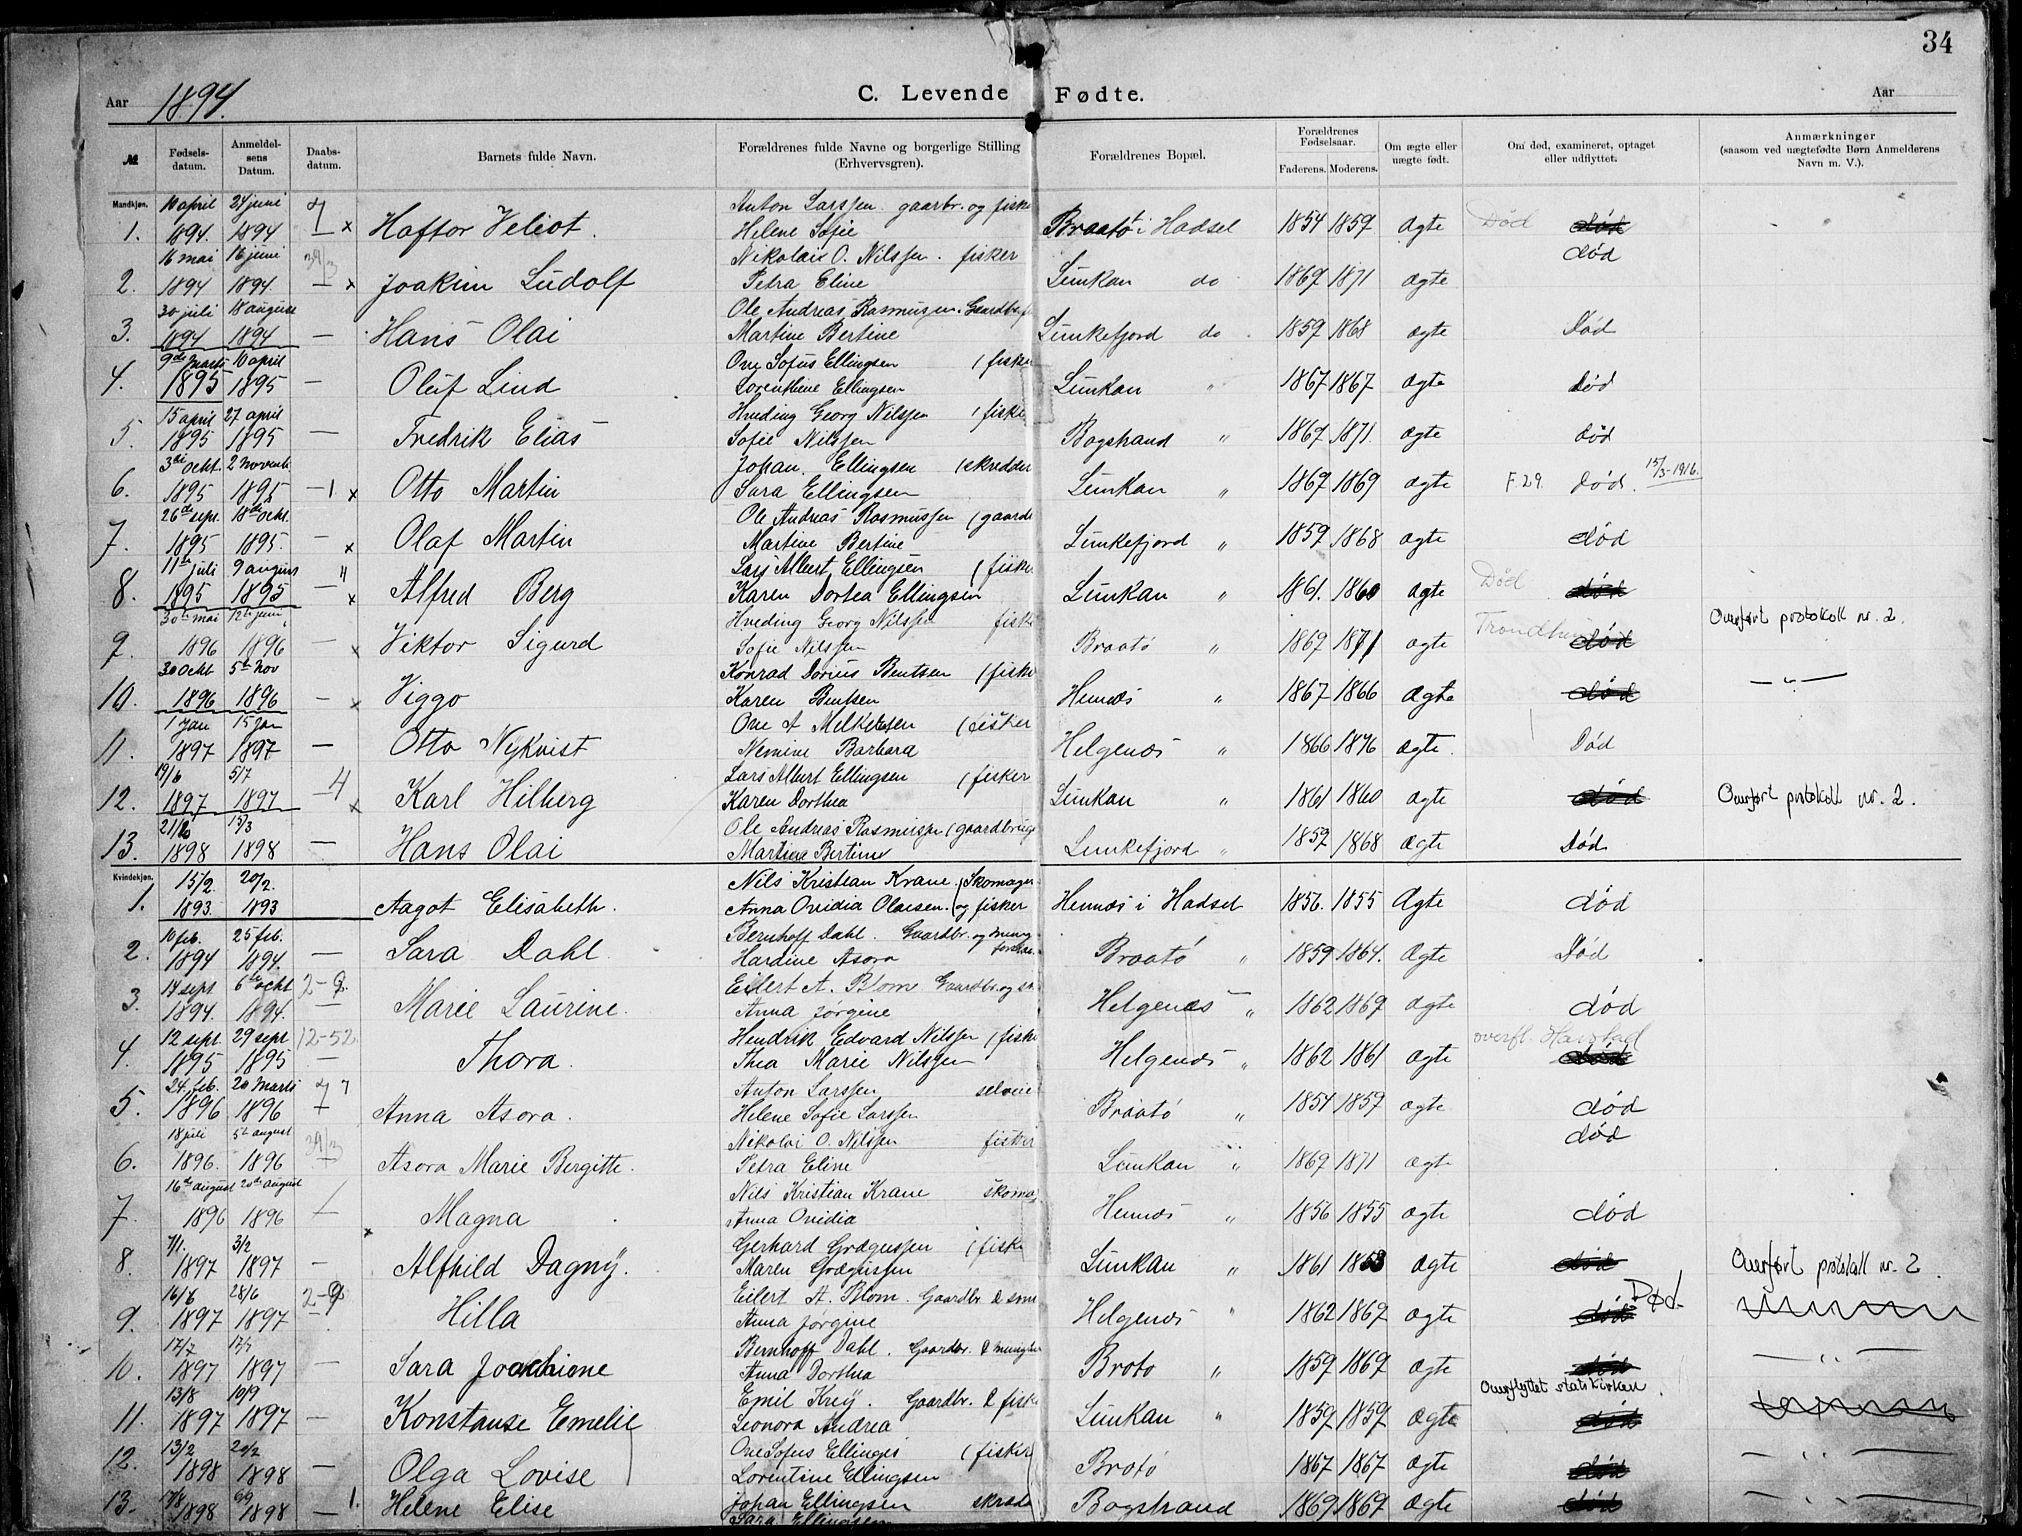 34
Aar 1894. C. Levende Fødte. Aar
№ Fødsels-datum. Anmeldel-sens Datum. Daabs-datum. Barnets fulde Navn. Forældrenes fulde Navne og borgerlige Stilling (Erhvervsgren). Forældrenes Bopæl. Forældrenes Fødselsaar. Faderens. Moderens. Om ægte eller uægte født. Om død, examineret, optaget eller udflyttet. Anmærkninger (saasom ved uægtefødte Børn Anmelderens Navn m. V.).
Mandkjøn. 10 april 24 juni 7 Anton Larssen gaarbr. og fisker
1. 1894. 1894 x Haftor Veliot. Helene Sofie Braatö i Hadsel 1854 1859 Ægte Død død
16 mai 16 juni 39/3 Nikolais O. Nilssen. fisker død
2. 1894 1894. — x Joakim Ludolf Petra Eline Lunkan do 1869 1871 ægte
30 juli 18 august Ole Andreas Rasmussen. Gaardb.
3. 1894 1894 — Hans Olai Martine Bertine Lunkefjord do 1859 1868 ægte Død
9de marts 10 april Ove Sofus Ellingsen (fisker
4. 1895 1895 — Oluf Lind Lorenthine Ellingsen Lunkan " 1867 1867 ægte død
15 april 27 april Hveding Georg Nilssen (fisker
5. 1895 1895 — Fredrik Elias Sofie Nilssen Bogstrand " 1869 1871. ægte død
3die okt. 2 novemb. Johan. Ellingsen (skredder
6. 1895 1895 —1 x Otto Martin Sara Ellingsen Lunkan " 1869 1869 ægte F.29. død. 15/3-1916.
26de sept. 18de okt. Ole Andreas Rasmussen (gaardb
7. 1895 1895. x Olaf Martin Martine Bertine Lunkefjord " 1859 1868 ægte død
11te juli 9 august 4 Lars Albert Ellingsen (fisker
8. 1895 1895 — x Alfred Berg Karen Dortea Ellingsen Lunkan " 1861. 1860 ægte Død død
30te mai 12te juni Hveding Georg Nilssen fisker Overført protokoll nr. 2.
9. 1896 1896 — x Viktor Sigurd Sofie Nilssen Braatö " 1869 1871 ægte død
30 okt 5te nov Konrad Dorius Bentsen (fisker
10. 1896 1896 — x Viggo Karen Bentsen Hennæs " 1867 1866 ægte død — " —
1 Jan 15 Jan Ove A Melkersen (fisker
11. 1897 1897 — Otto Nykvist Nemine Barbara Helgenæs " 1866 1876 ægte. Død
19/6 5/7 Lars Albert Ellingsen (fisker
12. 1897 1897 —4 x Karl Hilberg Karen Dorthea Lunkan " 1861 1860 ægte død Overført protokoll nr. 2.
15/3 Ole Andreas Rasmussen (gaardbruger
13. 1898 1898 — Hans Olai Martina Bertine Lunkefjord " 1859 1868 ægte Død
Kvindekjøn. 15/2. 20/2. Nils Kristian Krane. (Skomager
1. 1893. 1893 Aagot Elisabeth. Anna Ovidia Olaisen. (og fisker Hennæs i Hadsel 1856. 1855 Ægte død
10 feb. 25 feb. Bernhoff Dahl. Gaardbr. og menig-
2. 1894 1894. — Sara Dahl. Hardine Asora Braatö " 1859 1864. Ægte Død
14 sept 6te okt 2-9. Eilert A. Blom Gaardbr. og
3. 1894. 1894. — Marie Laurine. Anna Jørgine Helgenæs " 1862 1869 ægte død
12 sept. 29 sept 12-52. Hendrik Edvard Nilssen (fisker overfl. Harstad
4. 1895 1895 — Thora. Thea Marie Nilssen Helgenæs " 1862 1861 ægte død
24 feb. 20 marts 7 Anton Larssen selveier
5. 1896 1896 Anna Asora. Helene Sofie Larssen Braatö " 1854 1859 ægte død
18 juli 5te august 39/3 Nikolai O. Nilssen fisker død
6. 1896. 1896 Asora Marie Bergitte. Petra Eline Lunkan " 1869 1871 ægte
16de august 20de august Nils Kristian Krane skoma
7. 1896 1896 x Magna Anna Ovidia Hennæs " 1856 1855 ægte død
7/1. 3/2 Gerhard Grægussen (fisker
8. 1897 1897 — Alfhild Dagny. Maren Grægussen Lunkan " 1861 1853 ægte død Overført protokoll nr. 2.
16/6 28/6 2-9 Eilert A. Blom. Gaardbr. & smed Død.
9. 1897 1897 Hilla Anna Jørgine Helgenæs " 1862 1869 ægte død
17/7 Bernhoff Dahl. Gaardbr. & menigh
10. 1897 1897 — Sara Joachime Anna Dorthea Broto " 1859 1869 ægte død — " —
13/8 10/9 Emil Krey. Gaardbr. & fisker Overflyttet statskirken.
11. 1897 1897 — Konstanse Emelie Leonora Andrea Lunkan " 1859 1859 ægte død
13/2 20/2 Ove Sofus Ellingsen (fisker
12. 1898 1898 — Olga Lovise Lorentine Ellingsen Brotö 1867 1867 ægte død — " —
17/8 Johan Ellingsen skræd
13. 1898 1898 — 1. Helene Elise Sara Ellingsen Bogstrand 1869 1869 ægte død — " —